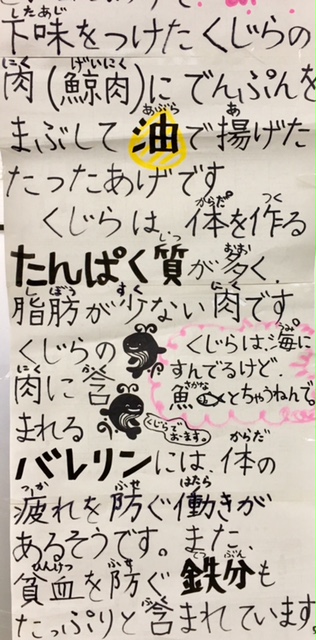 下味をつけたくじらの
肉(鯨肉)にでんぷんを
まぶして油で揚げた
たったあげです
くじらは、体を作る
たんぱく質が多く、
脂肪が少ない肉です。
くじらの
肉に含
まれる
くじらは、海に
すんでるけど、
魚とちゃうねんで。
くじらでおます。
バレリンには、体の
疲れを防ぐ働きが
あるそうです。また、
貧血を防ぐ鉄分も
たっぷりと含まれています。